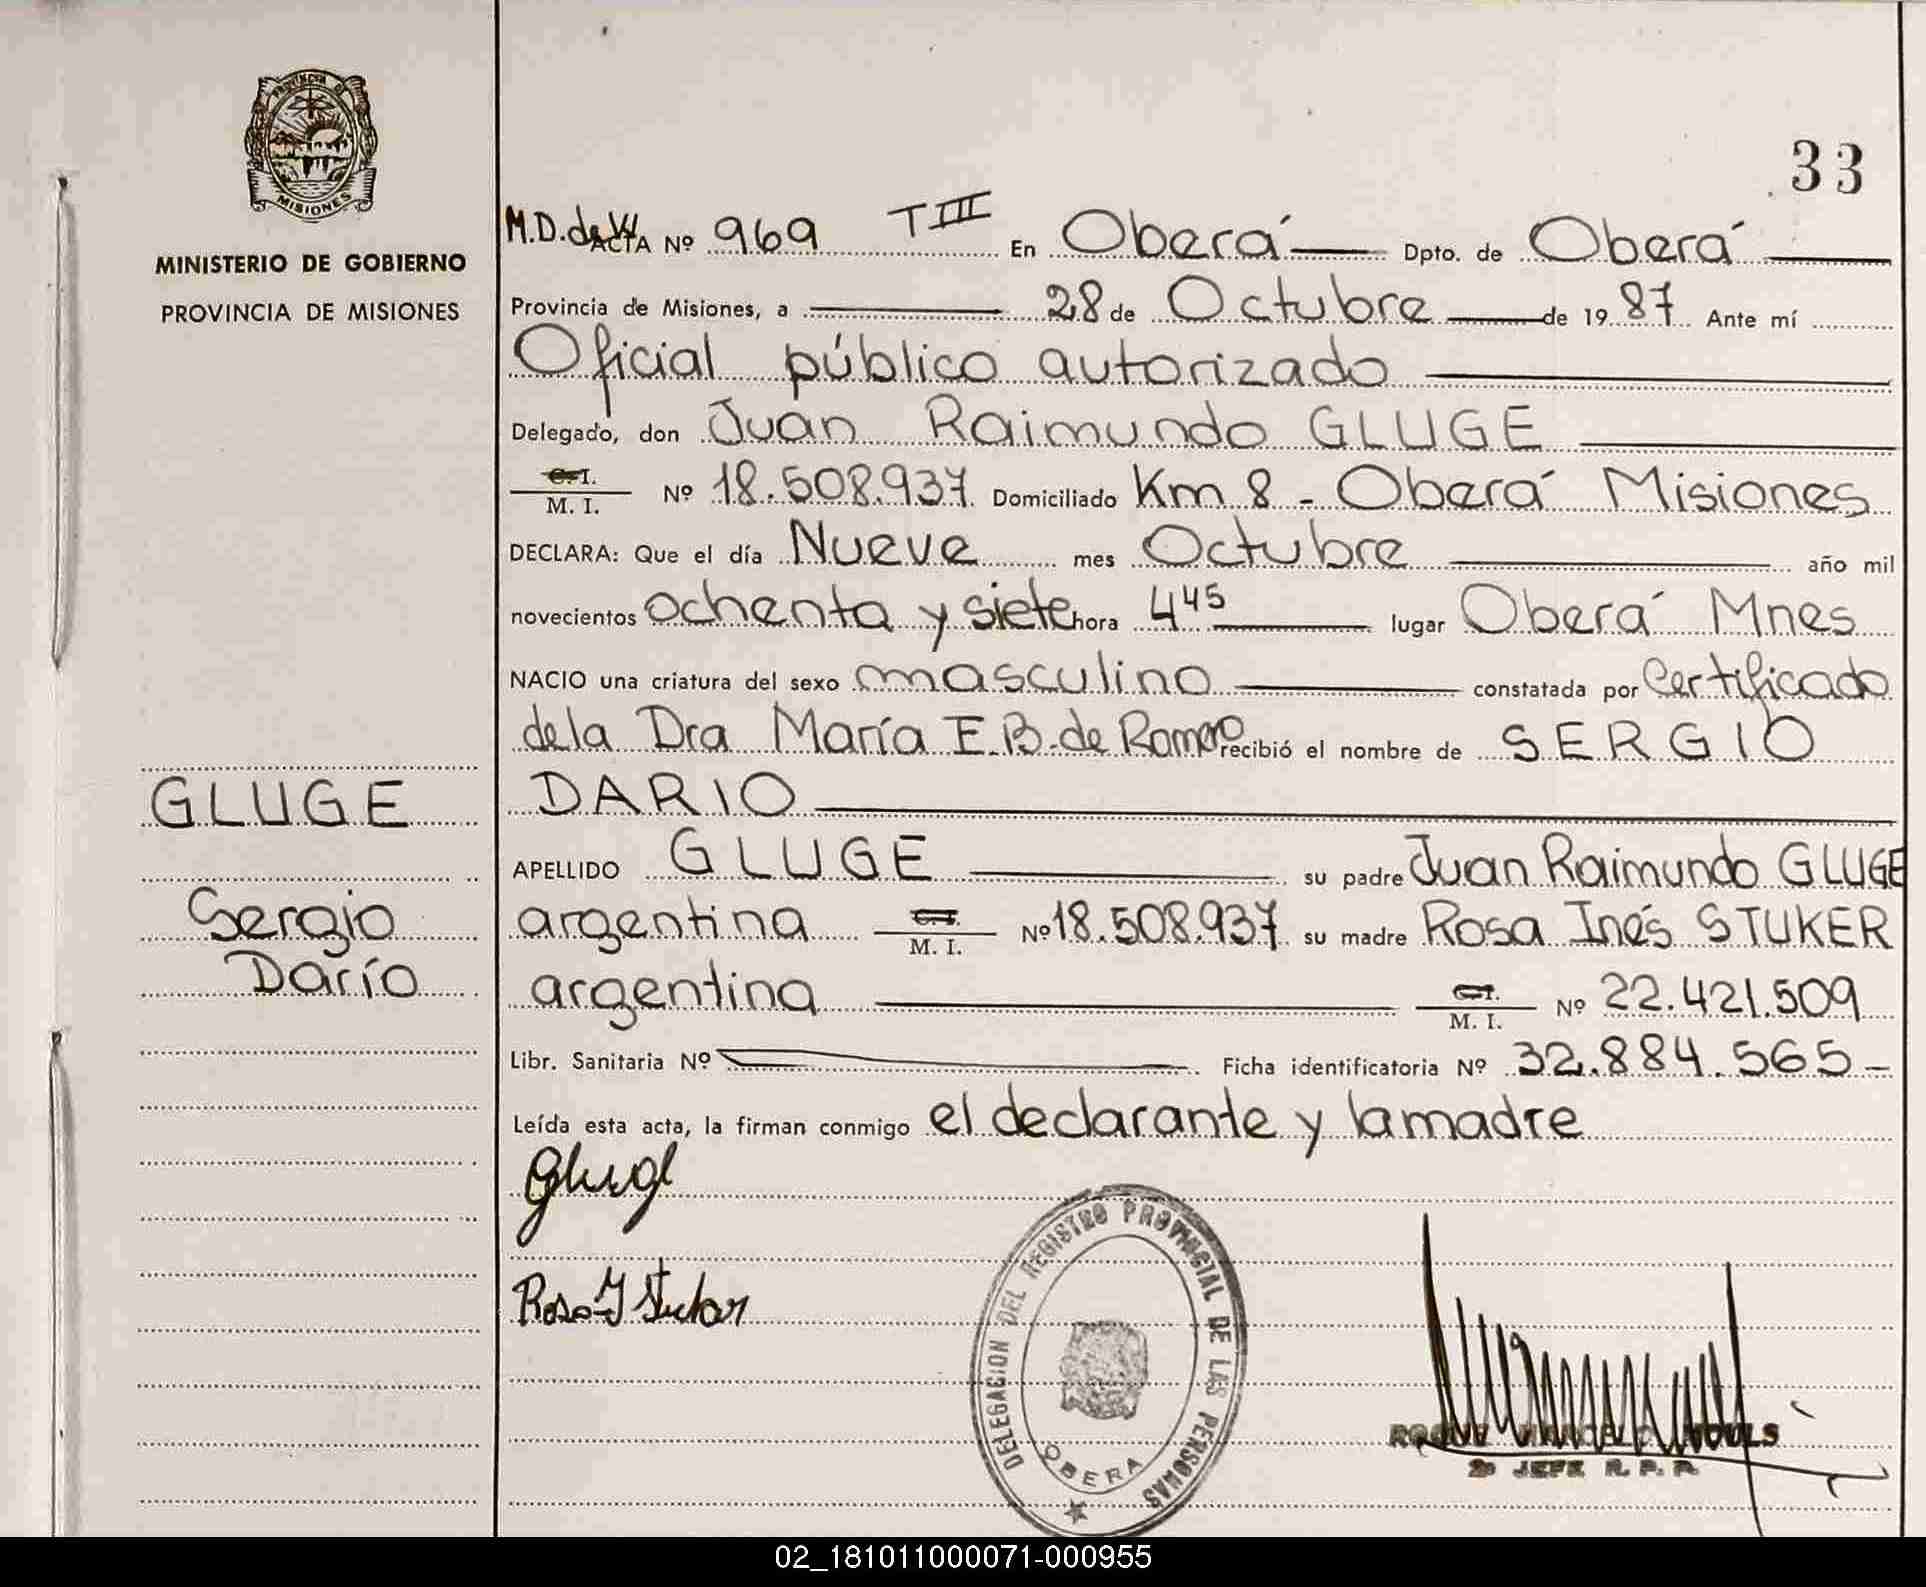 PROVINCIA DE
MISIONES
MINISTERIO DE GOBIERNO
PROVINCIA DE MISIONES
GLUGE
Sergio
Darío
33
M.D. de ACTA Nº 969 T III En Oberá Dpto. de Oberá
Provincia de Misiones, a 28 de Octubre de 1987 Ante mí
Oficial público autorizado
Delegado, don Juan Raimundo GLUGE
C. I.
M. I. Nº 18.508.937 Domiciliado Km 8 - Oberá Misiones
DECLARA: Que el día Nueve mes Octubre año mil
novecientos ochenta y siete hora 4 45 lugar Oberá Mnes
NACIO una criatura del sexo masculino constatada por Certificado
de la Dra María E.B. de Romero recibió el nombre de SERGIO
DARIO
APELLIDO GLUGE su padre Juan Raimundo GLUGE
argentina C. I. M. I. Nº 18.508.937 su madre Rosa Inés STUKER
argentina C. I. M. I. Nº 22.421.509
Libr. Sanitaria Nº Ficha identificatoria Nº 32.884.565-
Leída esta acta, la firman conmigo el declarante y la madre
Gluge
Rosa I Stuker
DELEGACION DEL REGISTRO PROVINCIAL DE LAS PERSONAS
OBERA
ROQUE
2º JEFE R. P. P.
02_181011000071-000955